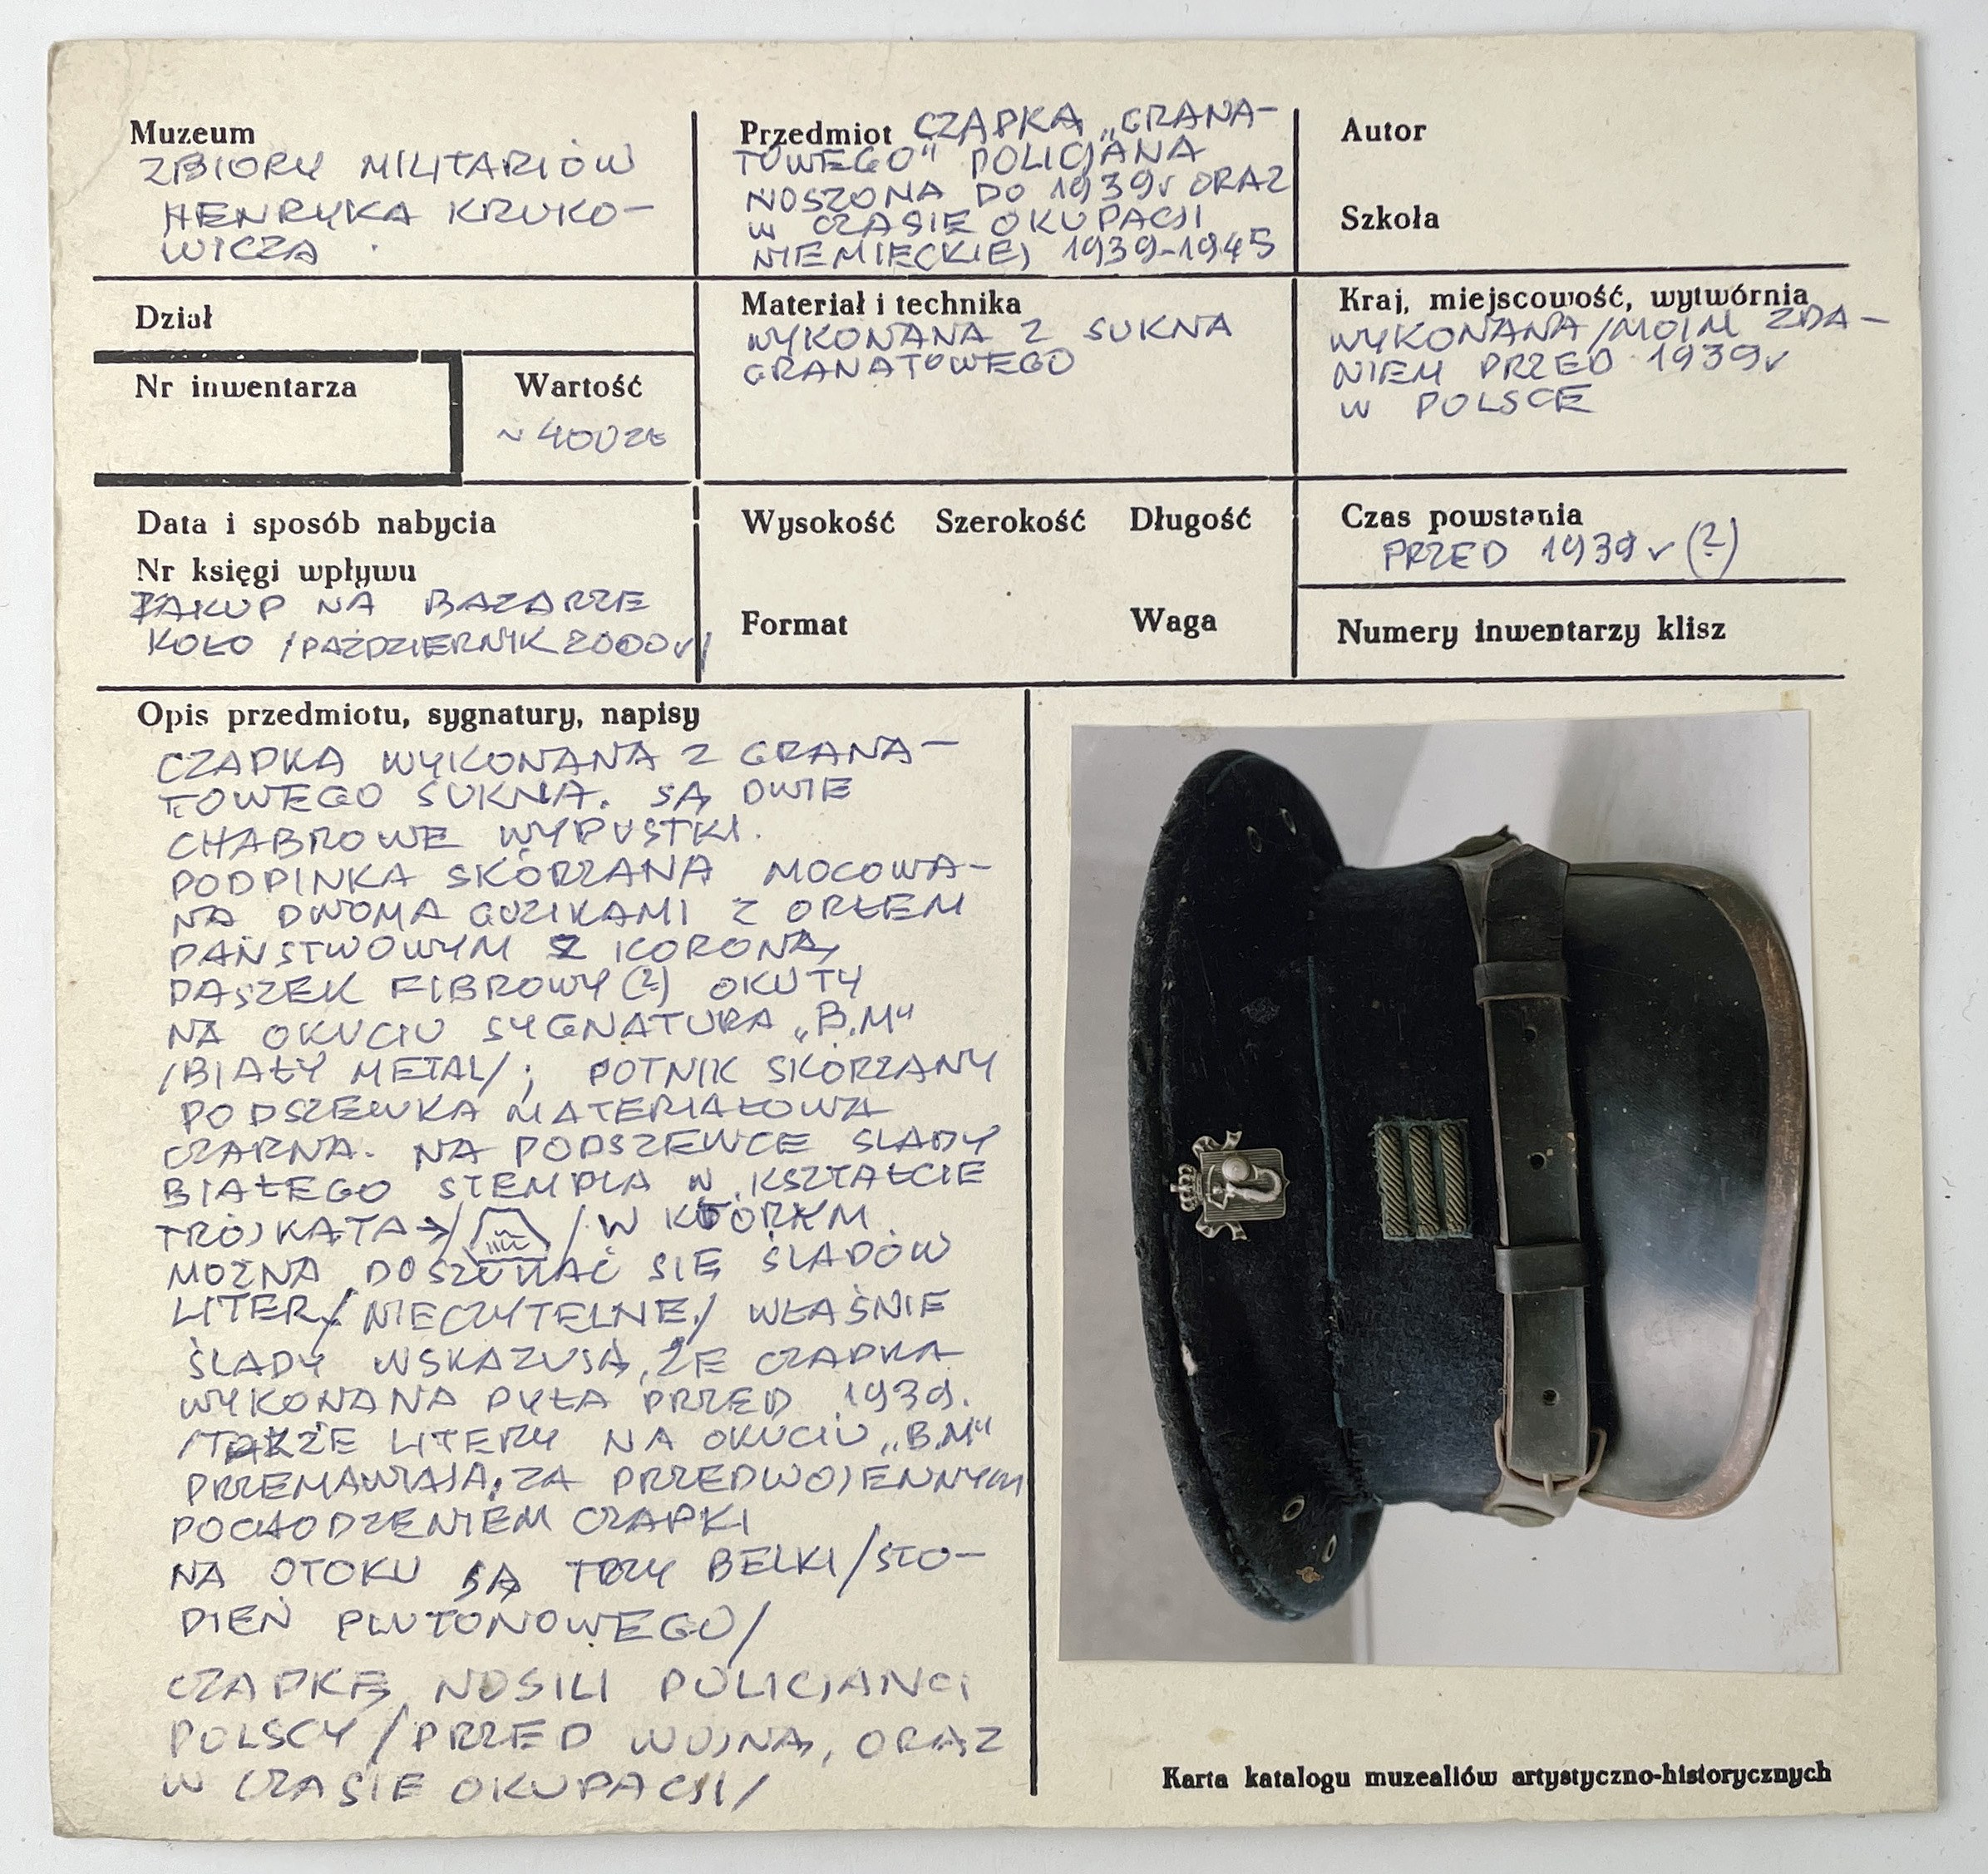 Muzeum
ZBIORY MILITARIÓW
HENRYKA KRUKO-
WICZA
Przedmiot CZAPKA „GRANA-
TOWEGO" POLICJANA
NOSZONA DO 1939r ORAZ
w CZASIE OKUPACJI
NIEMIECKIEJ 1939-1945
Autor
Szkoła
Dział
Nr inwentarza
Wartość
~ 400 zł
Materiał i technika
WYKONANA Z SUKNA
GRANATOWEGO
Kraj, miejscowość, wytwórnia
WYKONANA /MOIM ZDA-
NIEM PRZED 1939r
w POLSCE
Data i sposób nabycia
Nr księgi wpływu
ZAKUP NA BAZARZE
KOŁO /PAŹDZIERNIK 2000r/
Wysokość Szerokość Długość
Format Waga
Czas powstania
PRZED 1939r (?)
Numery inwentarzy klisz
Opis przedmiotu, sygnatury, napisy
CZAPKA WYKONANA Z GRANA-
TOWEGO SUKNA. SĄ DWIE
CHABROWE WYPUSTKI.
PODPINKA SKÓRZANA MOCOWA-
NA DWOMA GUZIKAMI Z ORŁEM
PAŃSTWOWYM Z KORONĄ
DASZEK FIBROWY (?) OKUTY
NA OKUCIU SYGNATURA „B.M"
/BIAŁY METAL/; POTNIK SKÓRZANY
PODSZEWKA MATERIAŁOWA
CZARNA. NA PODSZEWCE ŚLADY
BIAŁEGO STEMPLA W KSZTAŁCIE
TRÓJKĄTA → / / W KTÓRYM
MOŻNA DOSZUKAĆ SIĘ ŚLADÓW
LITER / NIECZYTELNE / WŁAŚNIE
ŚLADY WSKAZUJĄ, ŻE CZAPKA
WYKONANA BYŁA PRZED 1939.
/TAKŻE LITERY NA OKUCIU „B.M"
PRZEMAWIAJĄ ZA PRZEDWOJENNYM
POCHODZENIEM CZAPKI
NA OTOKU SĄ TRZY BELKI /STO-
PIEŃ PLUTONOWEGO/
CZAPKĘ NOSILI POLICJANCI
POLSCY /PRZED WOJNĄ, ORAZ
W CZASIE OKUPACJI/
Karta katalogu muzealiów artystyczno-historycznych